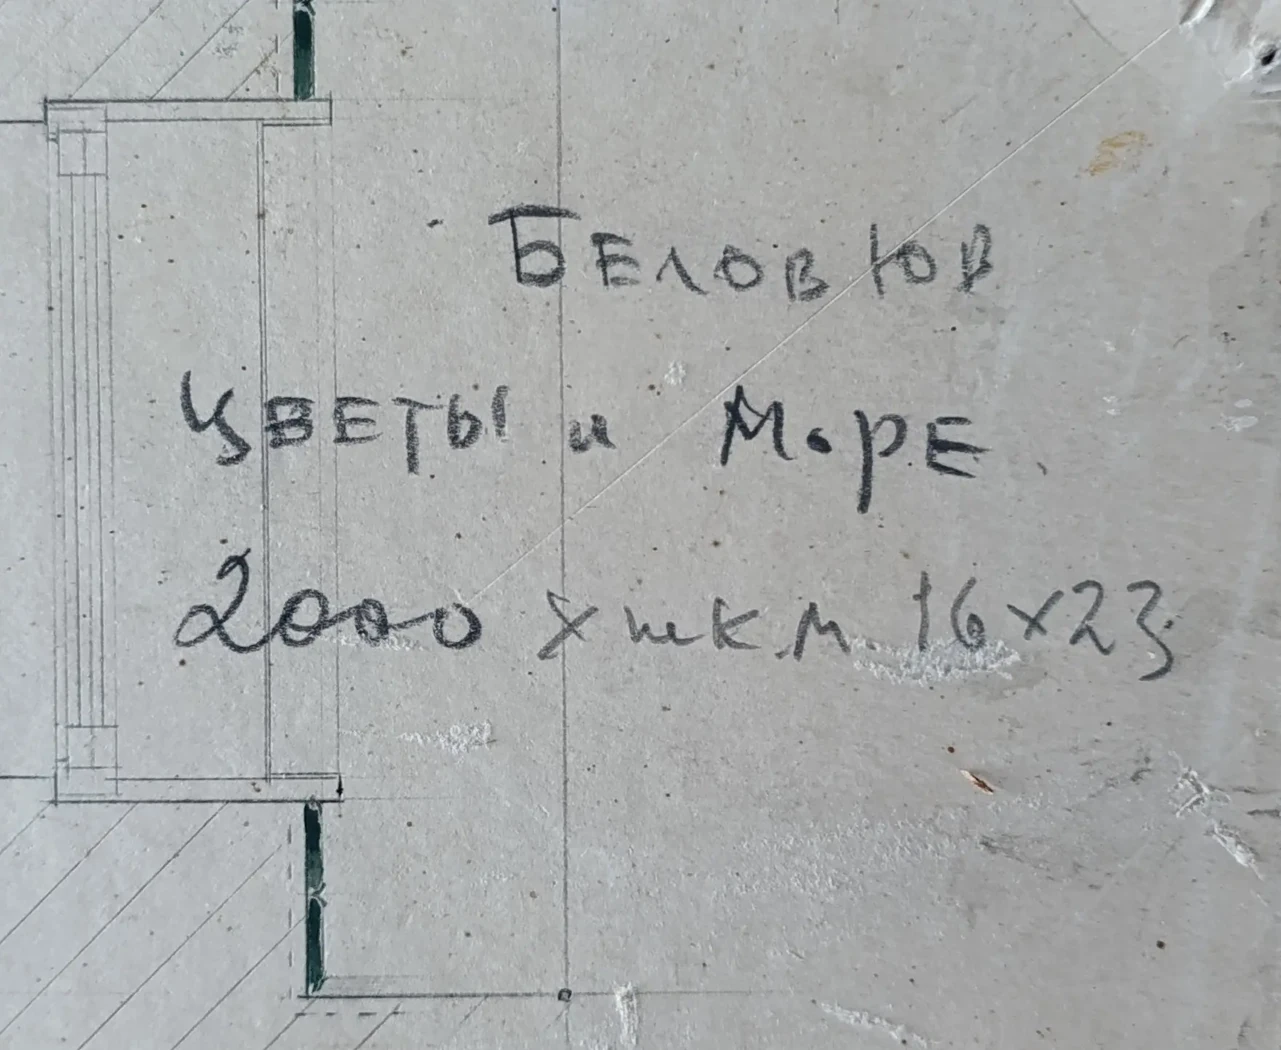 БЕЛОВ ЮВ
ЦВЕТЫ и МОРЕ.
2000 х шк.м. 16х23